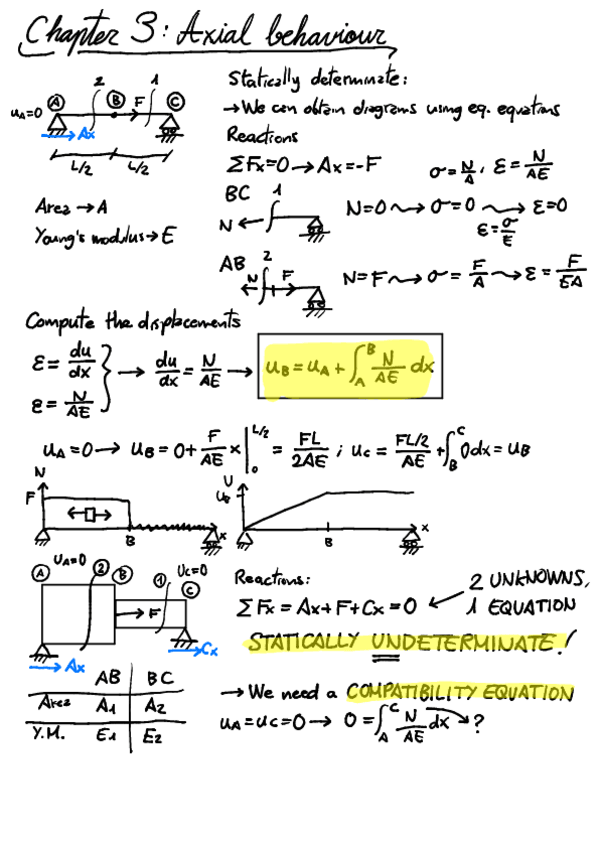 Chapter 3: Axial behaviour
Statically determinate:
→ We can obtain diagrams using eq. equations
2 1
A B F C
uA=0
Ax
L/2 L/2
Reactions
ΣFx=0 → Ax=-F
σ=N/A, ε=N/AE
Area → A
Young's modulus → E
BC 1
N
N=0 ⟿ σ=0 ⟿ ε=0
ε=σ/E
AB 2
N F
N=F ⟿ σ=F/A ⟿ ε=F/EA
Compute the displacements
ε=du/dx
ε=N/AE
→ du/dx=N/AE → uB=uA+∫_A^B N/AE dx
uA=0 → uB=0+F/AE x|_0^{L/2} = FL/2AE ; uC=FL/2/AE+∫_B^C 0dx=uB
N
F
B x
U
uB
B x
UA=0 UC=0
A 2 B 1 C
F
Ax Cx
Reactions:
ΣFx=Ax+F+Cx=0 ← 2 UNKNOWNS,
1 EQUATION
STATICALLY UNDETERMINATE!
AB BC
Area A1 A2
Y.M. E1 E2
→ We need a COMPATIBILITY EQUATION
uA=uC=0 → 0=∫_A^C N/AE dx → ?